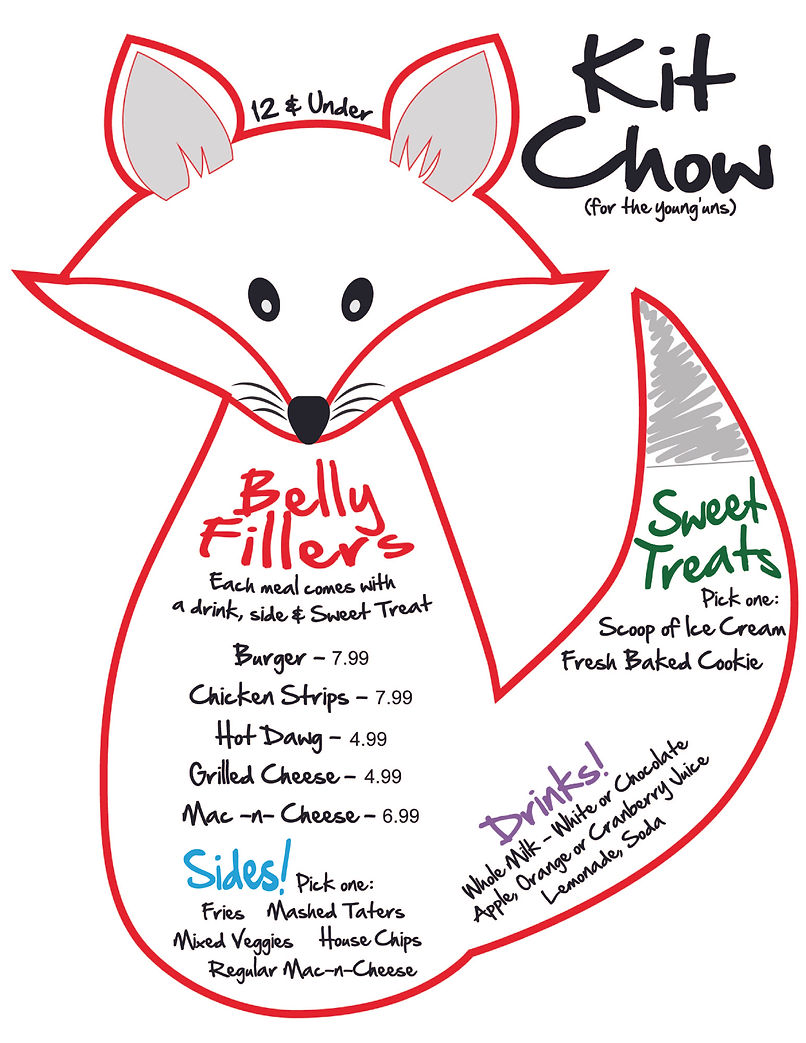 12 & Under
Kit
Chow
(for the young'uns)
Belly
Fillers
Each meal comes with
a drink, side & Sweet Treat
Burger – 7.99
Chicken Strips – 7.99
Hot Dawg – 4.99
Grilled Cheese – 4.99
Mac -n- Cheese – 6.99
Sides! Pick one:
Fries Mashed Taters
Mixed Veggies House Chips
Regular Mac-n-Cheese
Sweet
Treats
Pick one:
Scoop of Ice Cream
Fresh Baked Cookie
Drinks!
Whole Milk – White or Chocolate
Apple, Orange or Cranberry Juice
Lemonade, Soda